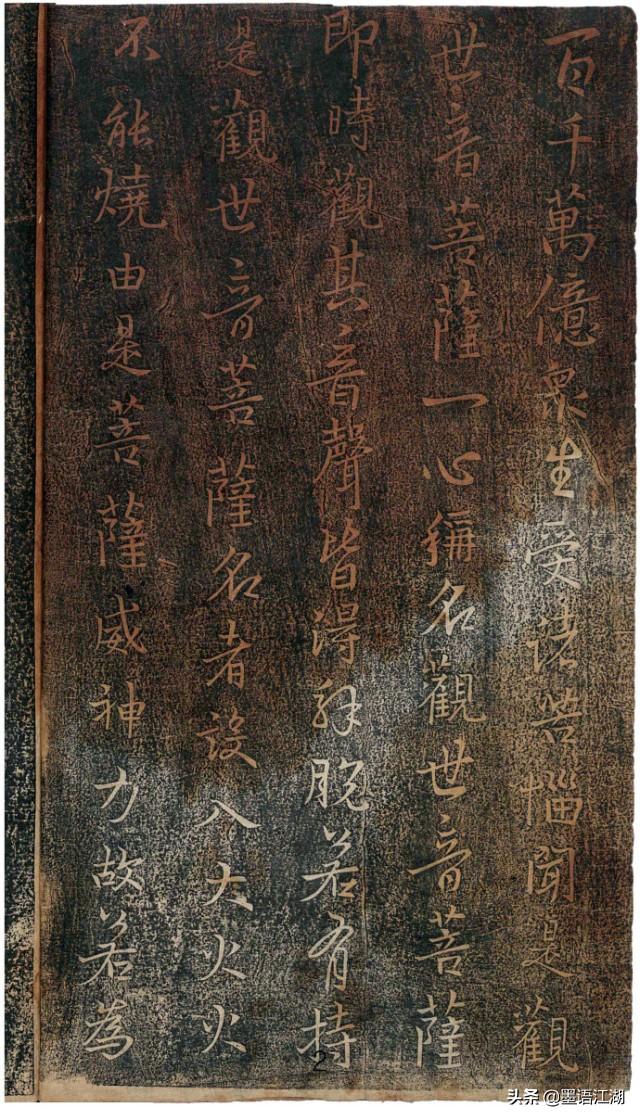 百千萬億衆生受諸苦惱聞是觀
世音菩薩一心稱名觀世音菩薩
即時觀其音聲皆得解脫若有持
是觀世音菩薩名者設入大火火
不能燒由是菩薩威神力故若為
2
头条 @墨语江湖